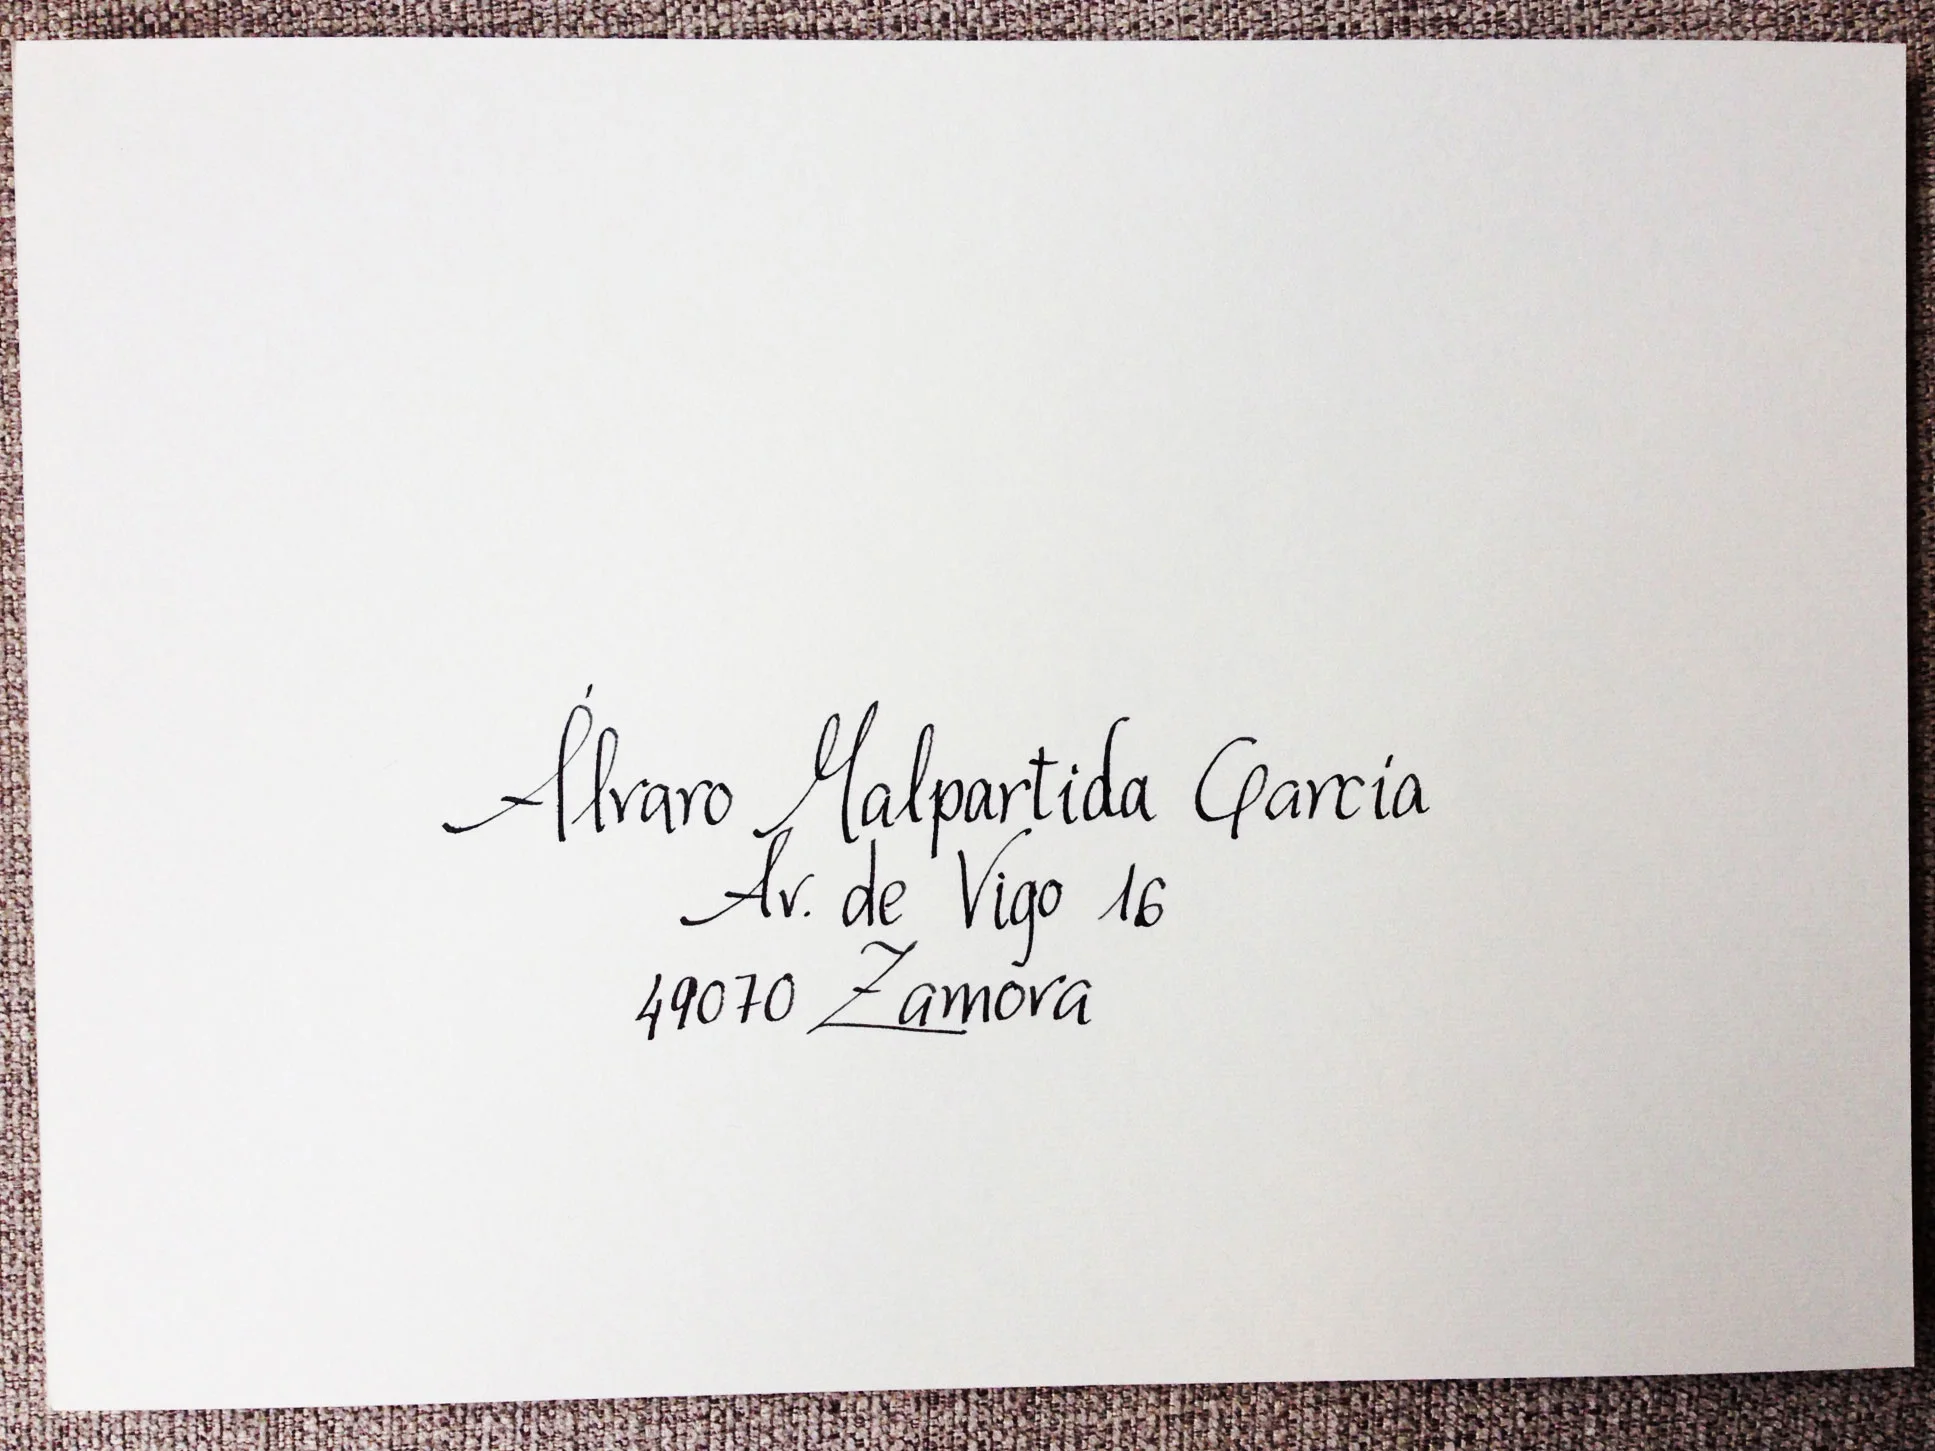 Álvaro Malpartida García
Av. de Vigo 16
49070 Zamora